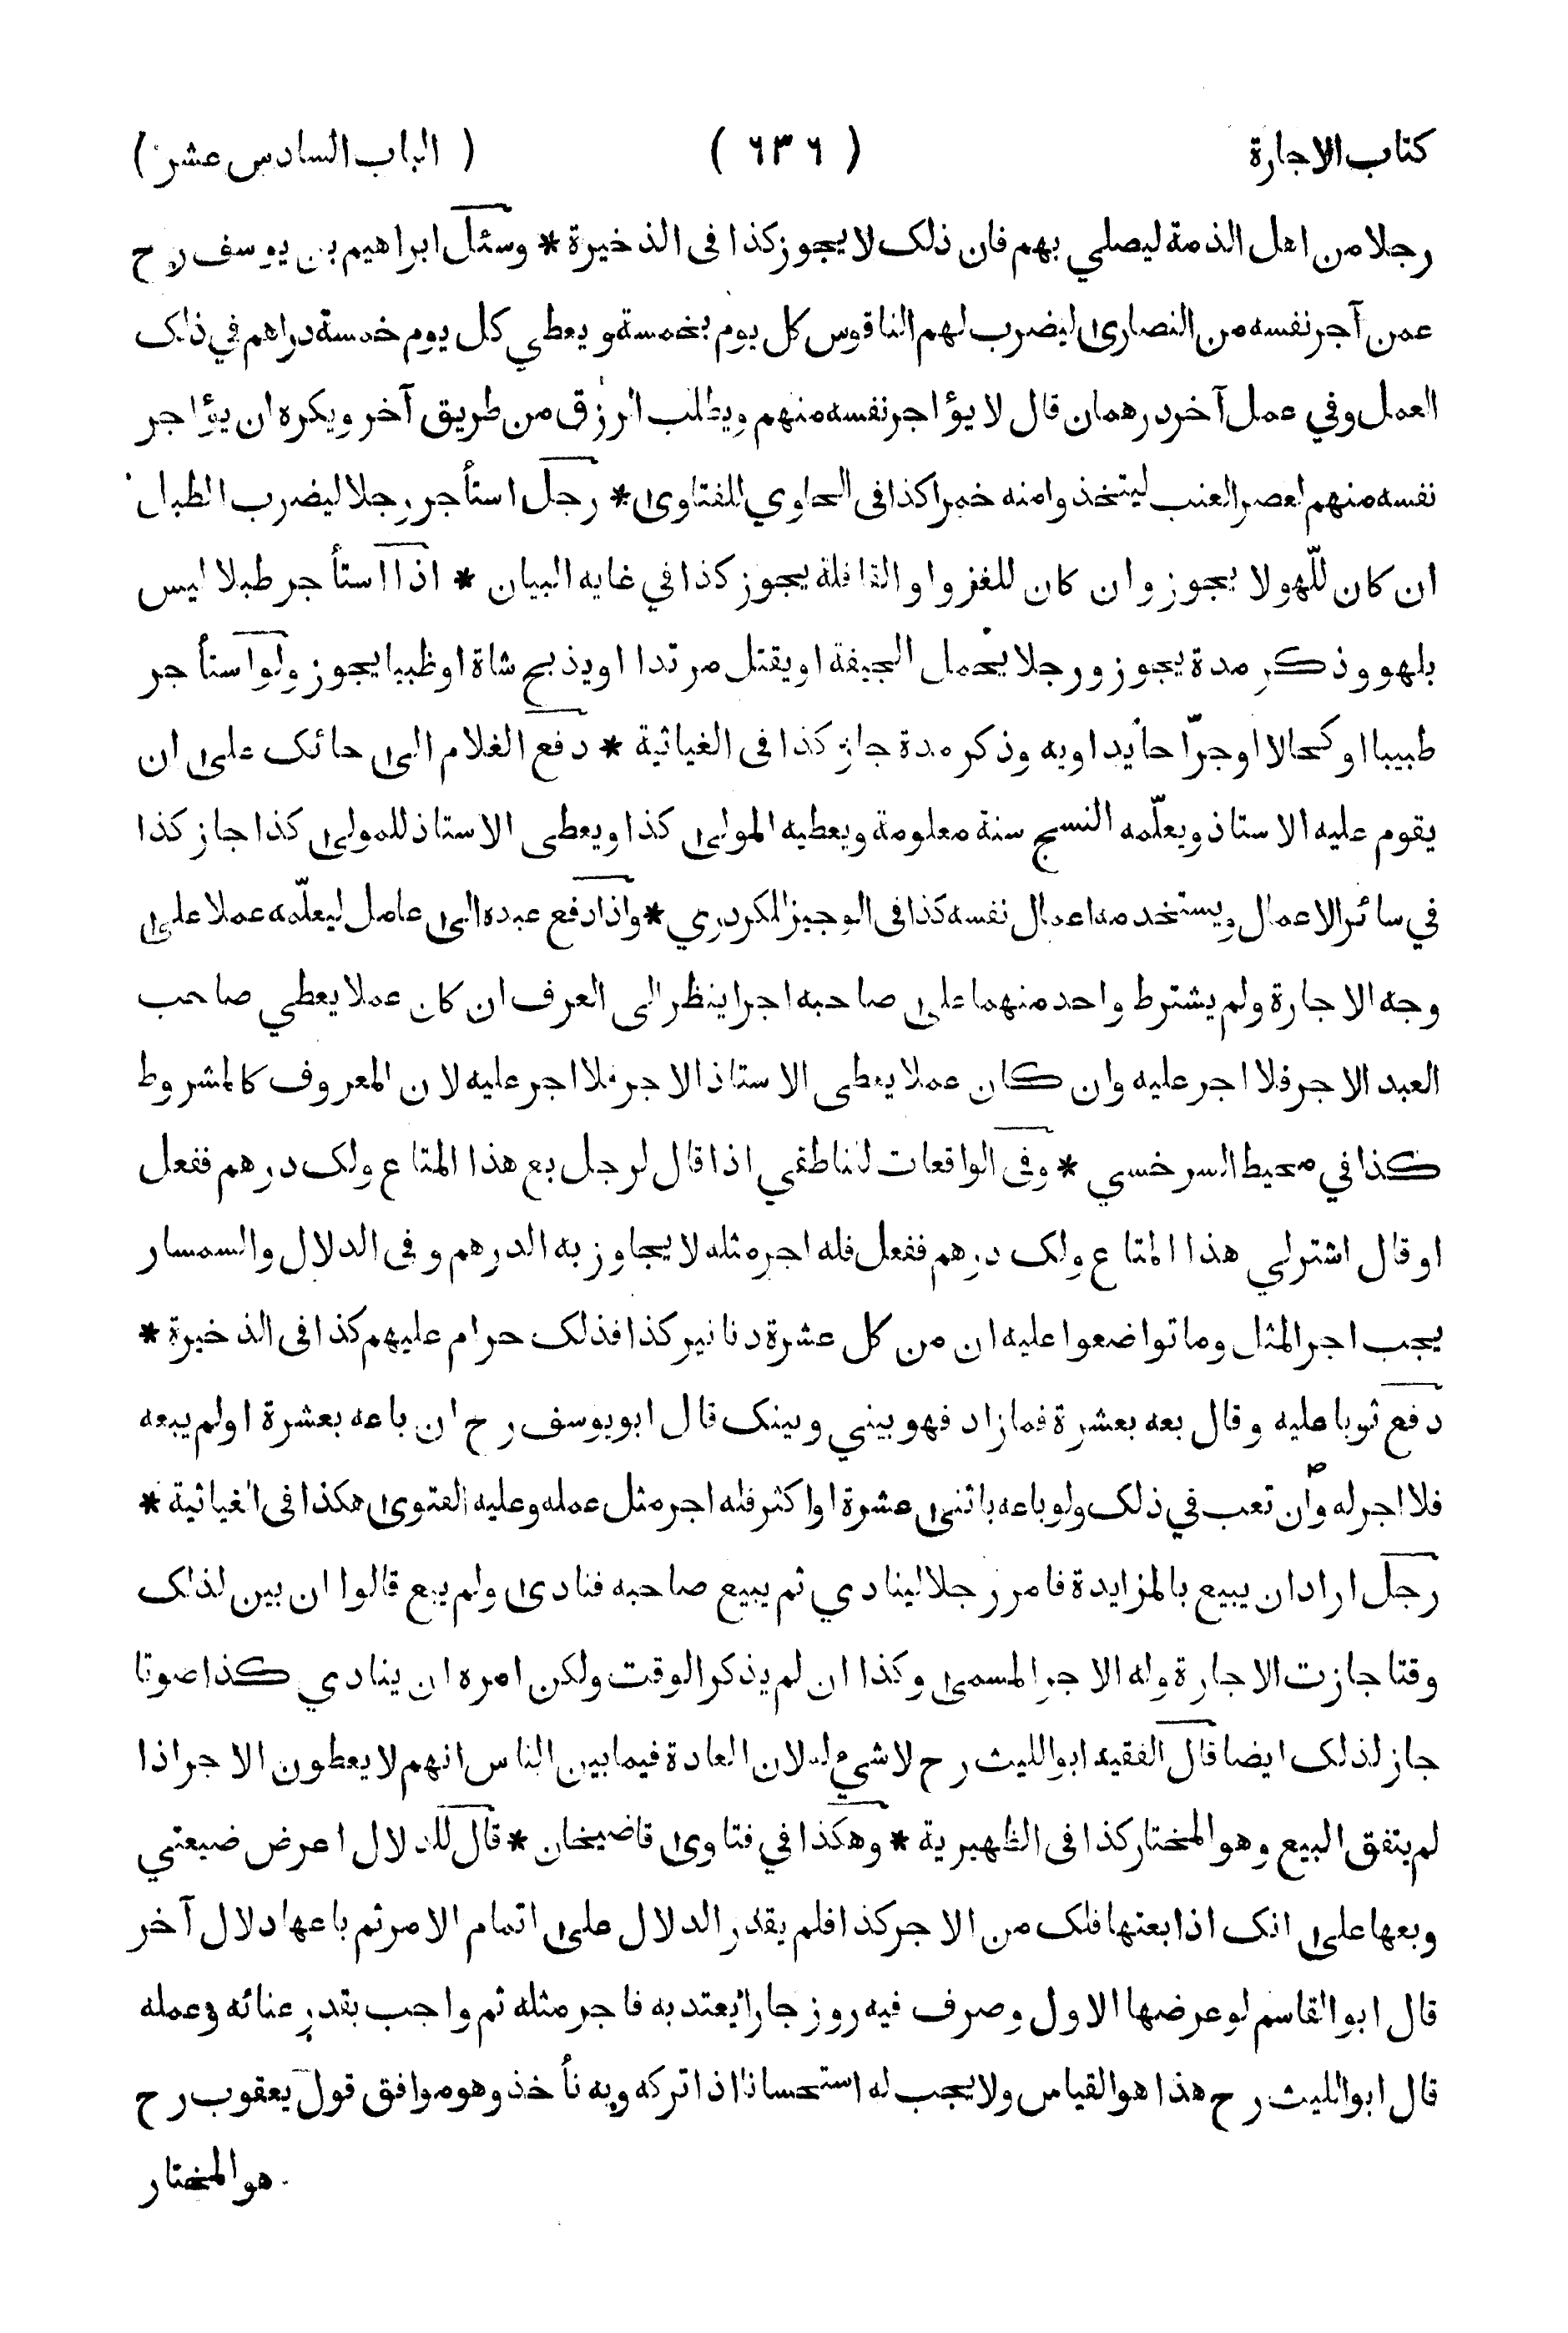 كتاب الاجارة ( ٦٣٦ ) ( الباب السادس عشر )
رجلا من اهل الذمة ليصلي بهم فان ذلك لا يجوز كذا فى الذخيرة * وسئل ابراهيم بن يوسف رح
عمن آجر نفسه من النصارى ليضرب لهم الناقوس كل يوم بخمسة ويعطي كل يوم خمسة دراهم في ذلك
العمل وفي عمل آخر درهمان قال لا يؤاجر نفسه منهم ويطلب الرزق من طريق آخر ويكره ان يؤاجر
نفسه منهم لعصر العنب ليتخذوا منه خمرا كذا فى الحاوي للفتاوى * رجل استأجر رجلا ليضرب الطبل
ان كان للّهو لا يجوز وان كان للغزو او القافلة يجوز كذا في غايه البيان * اذا استأجر طبلا ليس
بلهو وذكر مدة يجوز ورجلا يحمل الجيفة او يقتل مرتدا او يذبح شاة او ظبيا يجوز ولو استأجر
طبيبا او كحالا او جرّاحا يداويه وذكر مدة جاز كذا فى الغياثية * دفع الغلام الى حائك على ان
يقوم عليه الاستاذ ويعلّمه النسج سنة معلومة ويعطيه المولى كذا ويعطى الاستاذ للمولى كذا جاز كذا
في سائر الاعمال ويستخدمه اعمال نفسه كذا فى الوجيز للكردري * واذا دفع عبده الى عامل ليعلّمه عملا على
وجه الاجارة ولم يشترط واحد منهما على صاحبه اجرا ينظر الى العرف ان كان عملا يعطي صاحب
العبد الاجر فلا اجر عليه وان كان عملا يعطى الاستاذ الاجر فلا اجر عليه لان المعروف كالمشروط
كذا في محيط السرخسي * وفى الواقعات للناطفي اذا قال لرجل بع هذا المتاع ولك درهم ففعل
او قال اشتر لي هذا المتاع ولك درهم ففعل فله اجر مثله لا يجاوز به الدرهم وفى الدلال والسمسار
يجب اجر المثل وما تواضعوا عليه ان من كل عشرة دنانير كذا فذلك حرام عليهم كذا فى الذخيرة *
دفع ثوبا عليه وقال بعه بعشرة فما زاد فهو بيني وبينك قال ابو يوسف رح ان باعه بعشرة او لم يبعه
فلا اجر له وان تعب في ذلك ولو باعه باثنى عشرة او اكثر فله اجر مثل عمله وعليه الفتوى هكذا فى الغياثية *
رجل اراد ان يبيع بالمزايدة فامر رجلا لينادي ثم يبيع صاحبه فنادى ولم يبع قالوا ان بين لذلك
وقتا جازت الاجارة وله الاجر المسمى وكذا ان لم يذكر الوقت ولكن امره ان ينادي كذا صوتا
جاز لذلك ايضا قال الفقيه ابو الليث رح لا شيء له لان العادة فيما بين الناس انهم لا يعطون الاجر اذا
لم يتفق البيع وهو المختار كذا فى الظهيرية * وهكذا في فتاوى قاضيخان * قال للدلال اعرض ضيعتي
وبعها على انك اذا بعتها فلك من الاجر كذا فلم يقدر الدلال على اتمام الامر ثم باعها دلال آخر
قال ابو القاسم لو عرضها الاول وصرف فيه روزجارا يعتد به فاجر مثله ثم واجب بقدر عنائه وعمله
قال ابو الليث رح هذا هو القياس ولا يجب له استحسانا اذا تركه وبه نأخذ وهو موافق قول يعقوب رح
هو المختار